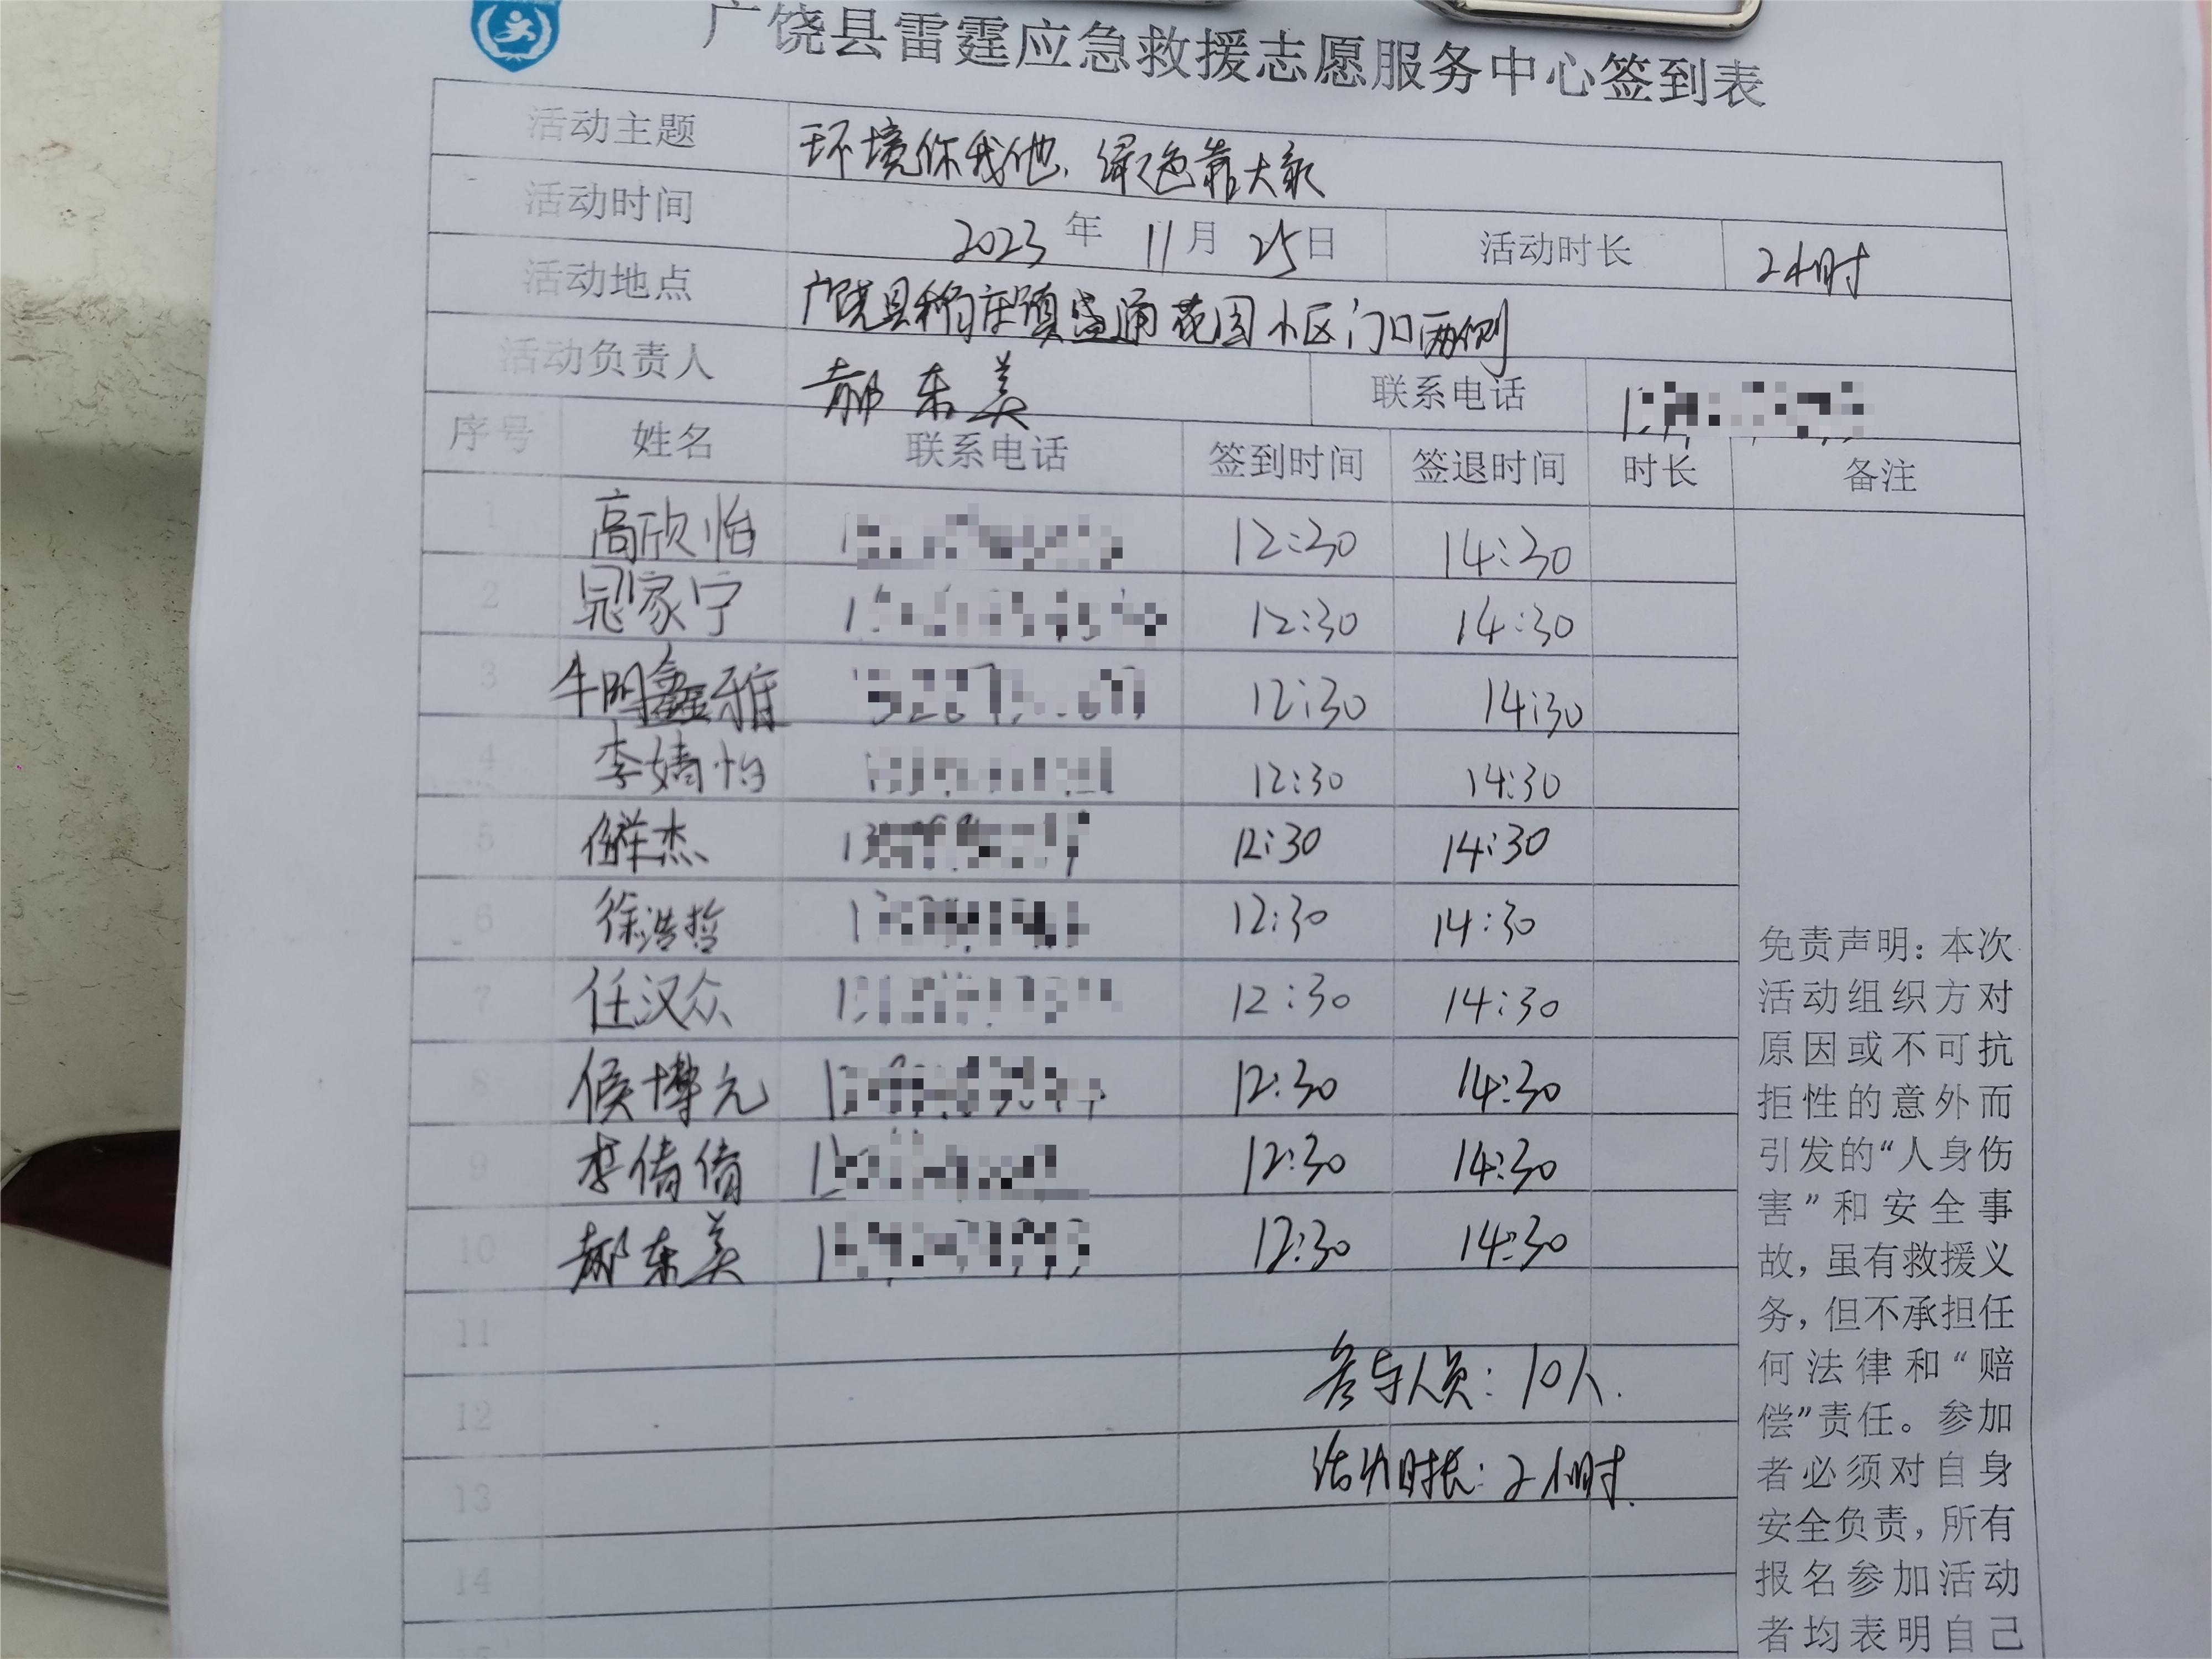 广饶县雷霆应急救援志愿服务中心签到表
活动主题 环境你我他、绿色靠大家
活动时间 2023年 11月 25日 活动时长 2小时
活动地点 广饶县稻庄镇盛通花园小区门口两侧
活动负责人 郝东美 联系电话
序号 姓名 联系电话 签到时间 签退时间 时长 备注
1 高欣怡 12:30 14:30
2 家宁 12:30 14:30
3 牛明鑫雅 12:30 14:30
4 李婧怡 12:30 14:30
5 杰 12:30 14:30
6 徐浩哲 12:30 14:30
7 任汉众 12:30 14:30
8 侯博元 12:30 14:30
9 李倩倩 12:30 14:30
10 郝东美 12:30 14:30
11
参与人员：10人.
12
活动时长：2小时.
13
14
15
免责声明：本次
活动组织方对
原因或不可抗
拒性的意外而
引发的“人身伤
害”和安全事
故，虽有救援义
务，但不承担任
何法律和“赔
偿”责任。参加
者必须对自身
安全负责，所有
报名参加活动
者均表明自己